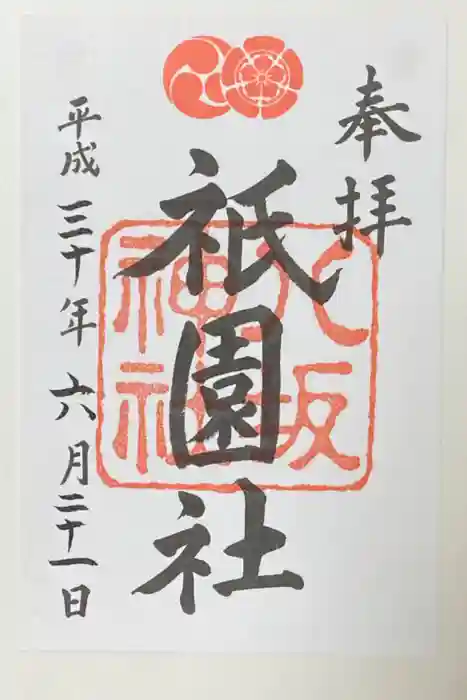 奉拝
八坂
神社
祇園社
平成三十年六月二十一日